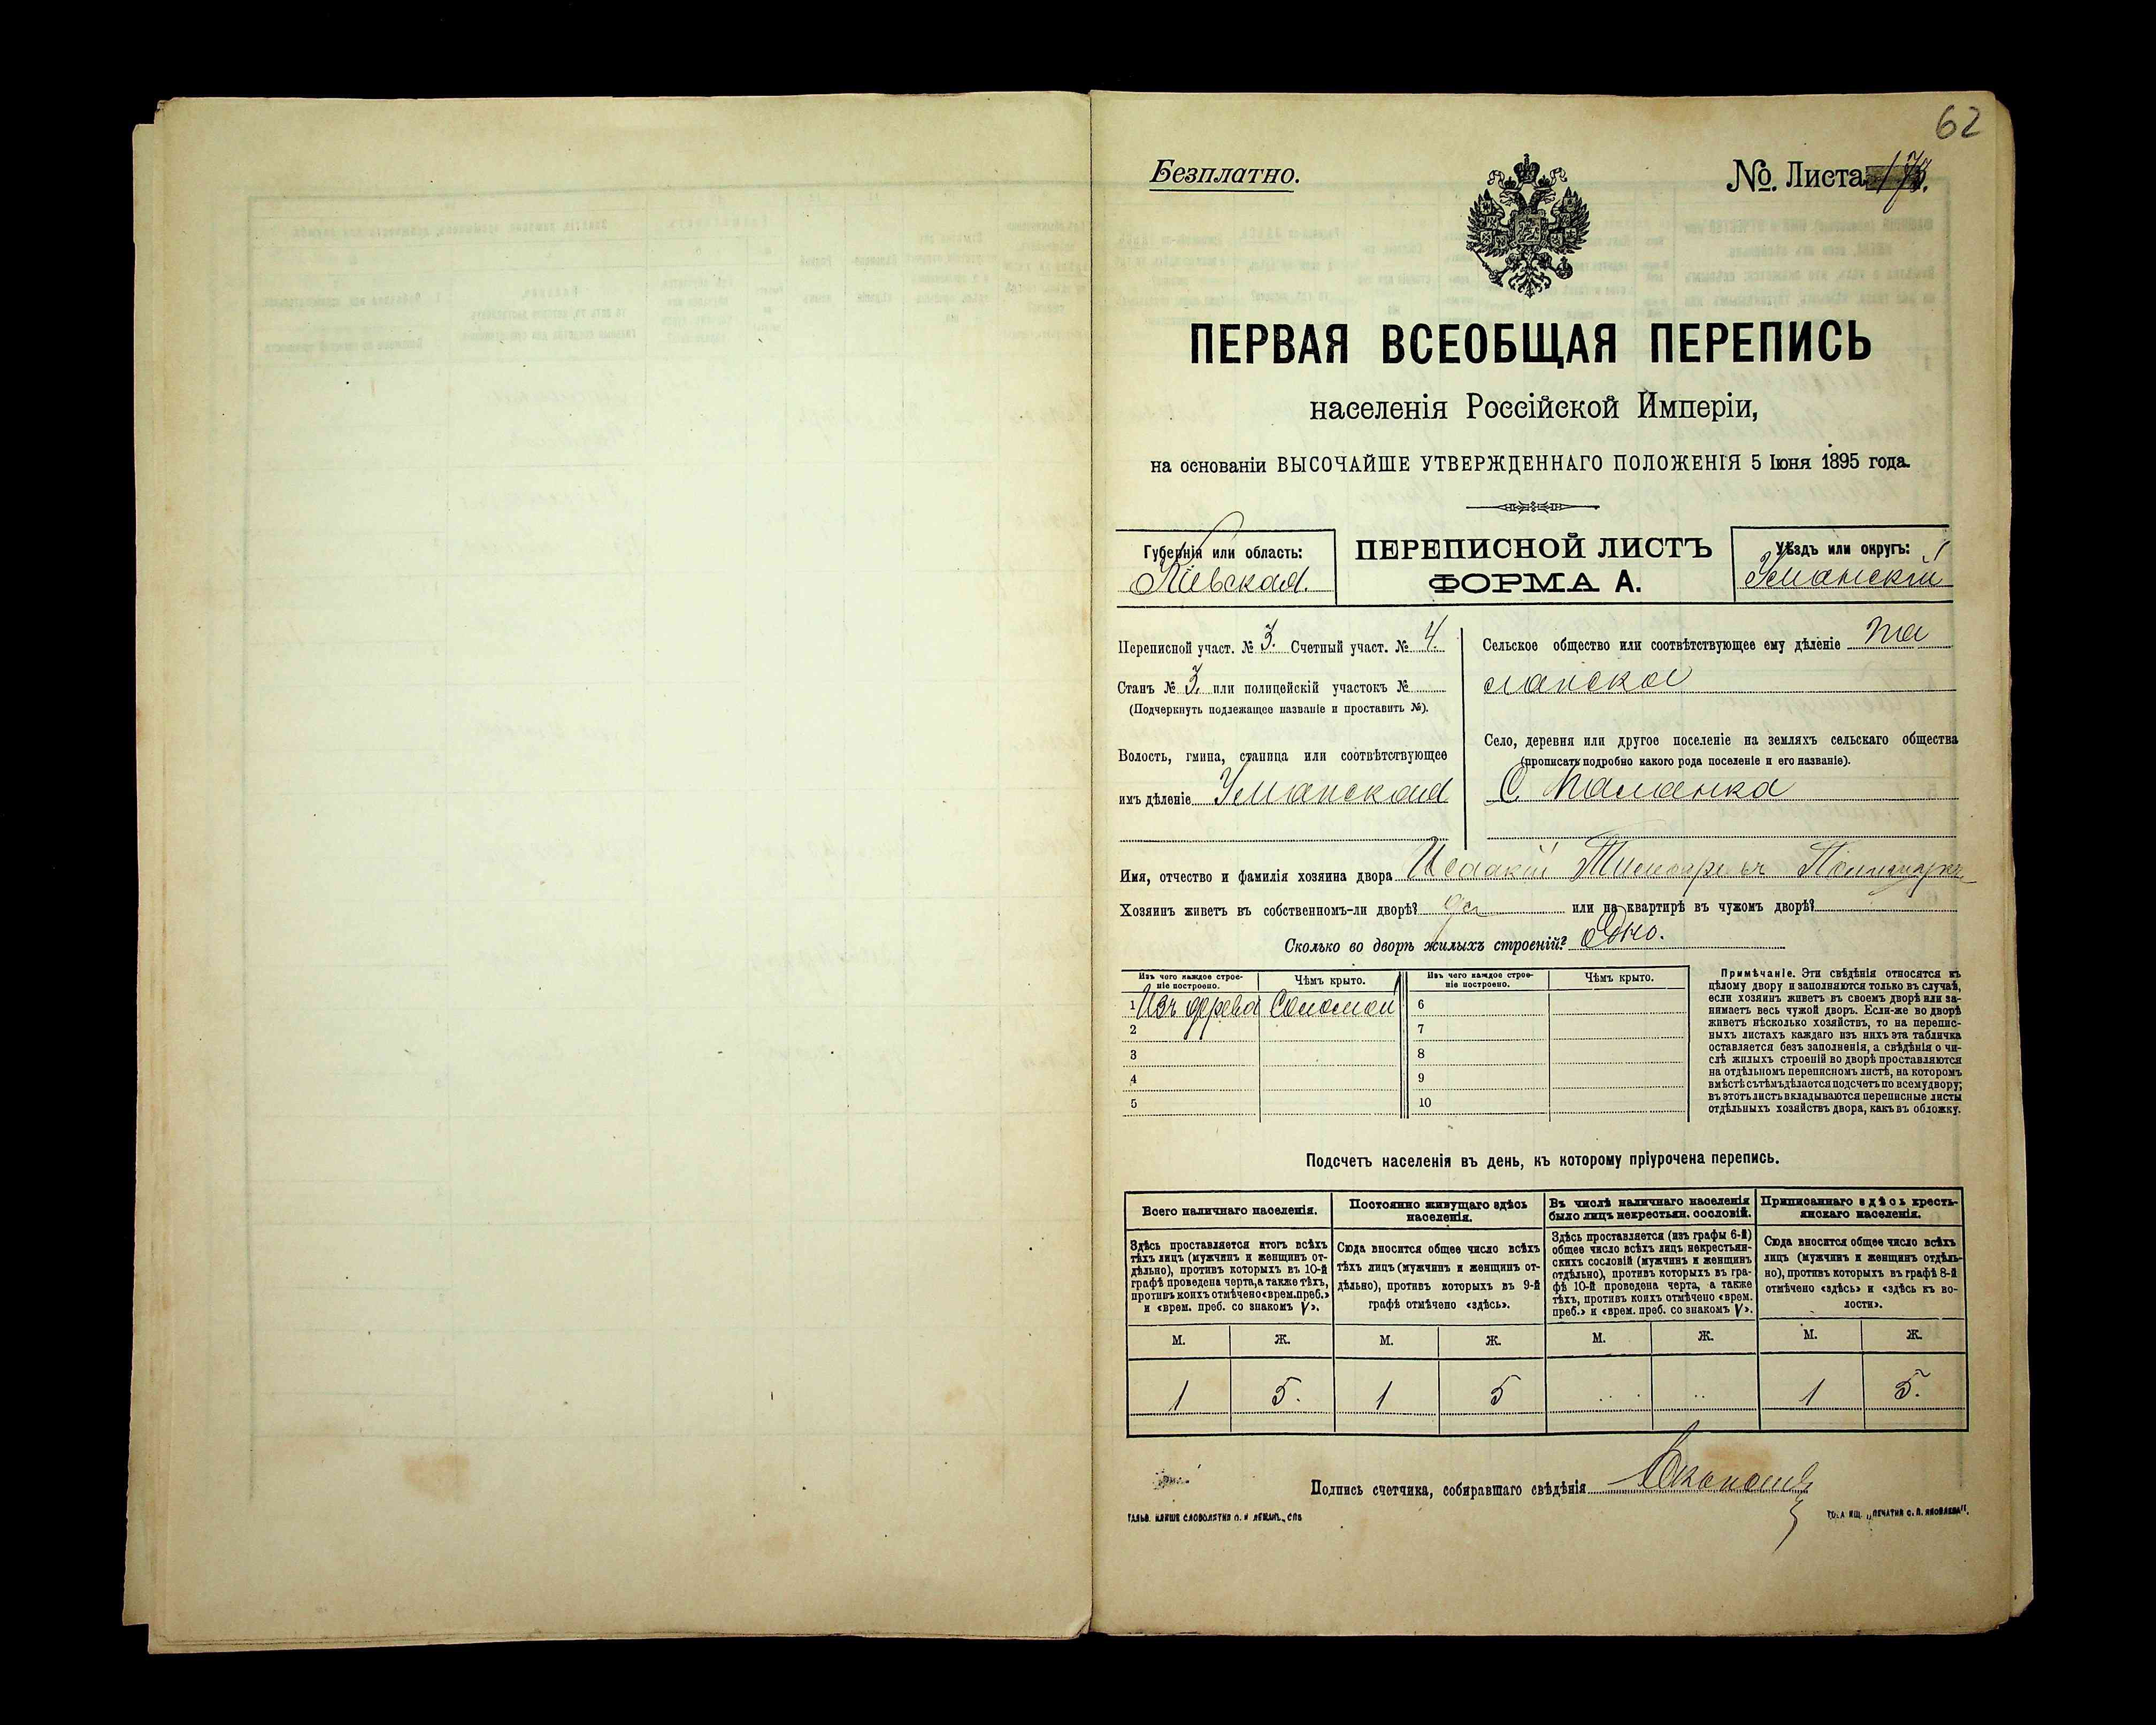 62
Безплатно.
№. Листа 173.
ПЕРВАЯ ВСЕОБЩАЯ ПЕРЕПИСЬ
населенія Россійской Имперіи,
на основаніи ВЫСОЧАЙШЕ УТВЕРЖДЕННАГО ПОЛОЖЕНІЯ 5 Іюня 1895 года.
Губернія или область:
Кіевская.
ПЕРЕПИСНОЙ ЛИСТЪ
ФОРМА А.
Уѣздъ или округъ:
Уманскій
Переписной участ. № 3. Счетный участ. № 4.
Станъ № 3. или полицейскій участокъ №
(Подчеркнуть подлежащее названіе и проставить №).
Волость, гмина, станица или соотвѣтствующее
имъ дѣленіе Уманская
Сельское общество или соотвѣтствующее ему дѣленіе Па
ланское
Село, деревня или другое поселеніе на земляхъ сельскаго общества
(прописать подробно какого рода поселеніе и его названіе).
С. Паланка
Имя, отчество и фамилія хозяина двора Исаакій
Хозяинъ живетъ въ собственномъ-ли дворѣ? да или на квартирѣ въ чужомъ дворѣ?
Сколько во дворѣ жилыхъ строеній? Одно.
Изъ чего каждое строе-
ніе построено.
Чѣмъ крыто.
Изъ чего каждое строе-
ніе построено.
Чѣмъ крыто.
1 Изъ дерева Соломой 6
2 7
3 8
4 9
5 10
Примѣчаніе. Эти свѣдѣнія относятся къ
цѣлому двору и заполняются только въ случаѣ,
если хозяинъ живетъ въ своемъ дворѣ или за-
нимаетъ весь чужой дворъ. Если-же во дворѣ
живетъ нѣсколько хозяйствъ, то на перепис-
ныхъ листахъ каждаго изъ нихъ эта табличка
оставляется безъ заполненія, а свѣдѣнія о чи-
слѣ жилыхъ строеній во дворѣ проставляются
на отдѣльномъ переписномъ листѣ, на которомъ
вмѣстѣ съ тѣмъ дѣлается подсчетъ по всему двору;
въ этотъ листъ вкладываются переписные листы
отдѣльныхъ хозяйствъ двора, какъ въ обложку.
Подсчетъ населенія въ день, къ которому пріурочена перепись.
Всего наличнаго населенія.
Здѣсь проставляется итогъ всѣхъ
тѣхъ лицъ (мужчинъ и женщинъ от-
дѣльно), противъ которыхъ въ 10-й
графѣ проведена черта, а также тѣхъ,
противъ коихъ отмѣчено «врем. преб.»
и «врем. преб. со знакомъ V».
Постоянно живущаго здѣсь
населенія.
Сюда вносится общее число всѣхъ
тѣхъ лицъ (мужчинъ и женщинъ от-
дѣльно), противъ которыхъ въ 9-й
графѣ отмѣчено «здѣсь».
Въ числѣ наличнаго населенія
было лицъ некрестьян. сословій.
Здѣсь проставляется (изъ графы 6-й)
общее число всѣхъ лицъ некрестьян-
скихъ сословій (мужчинъ и женщинъ
отдѣльно), противъ которыхъ въ гра-
фѣ 10-й проведена черта, а также
тѣхъ, противъ коихъ отмѣчено «врем.
преб.» и «врем. преб. со знакомъ V».
Приписаннаго здѣсь кресть-
янскаго населенія.
Сюда вносится общее число всѣхъ
лицъ (мужчинъ и женщинъ отдѣль-
но), противъ которыхъ въ графѣ 8-й
отмѣчено «здѣсь» и «здѣсь къ во-
лости».
М. Ж. М. Ж. М. Ж. М. Ж.
1 5. 1 5 1 5.
Подпись счетчика, собиравшаго свѣдѣнія